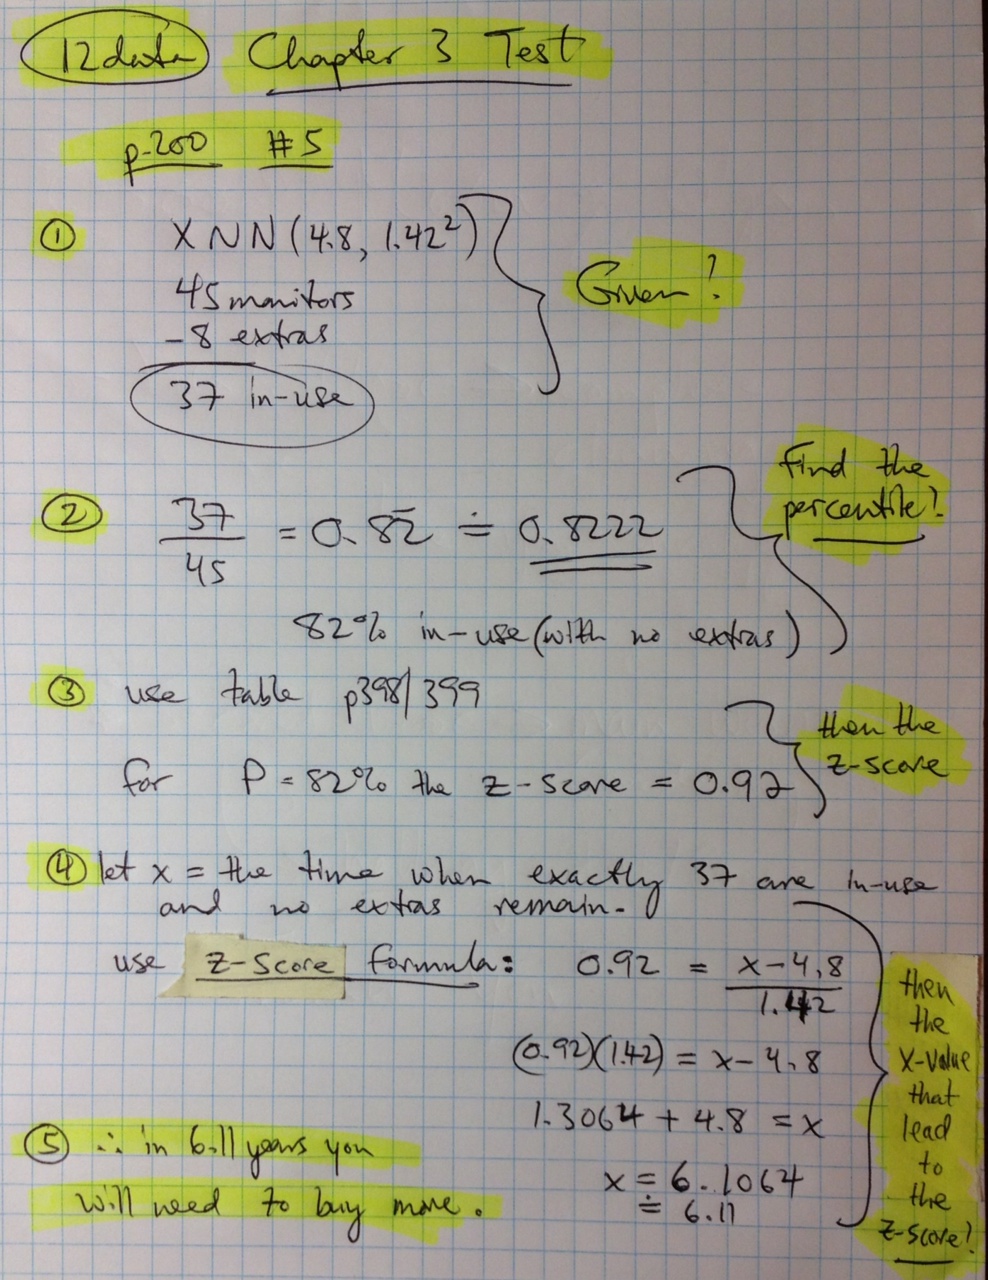 12data Chapter 3 Test
p.200 #5
① X ~ N (4.8, 1.42²)
45 monitors
- 8 extras
37 in-use
Given!
② 37/45 = 0.82̅ ≐ 0.8222
82% in-use (with no extras)
Find the
percentile!
③ use table p398/399
for P = 82% the z-score = 0.92
then the
z-score
④ let x = the time when exactly 37 are in-use
and no extras remain.
use z-score formula: 0.92 = x-4.8/1.42
(0.92)(1.42) = x-4.8
1.3064 + 4.8 = x
x = 6.1064
≐ 6.11
then
the
X-value
that
lead
to
the
z-score!
⑤ ∴ in 6.11 years you
will need to buy more.